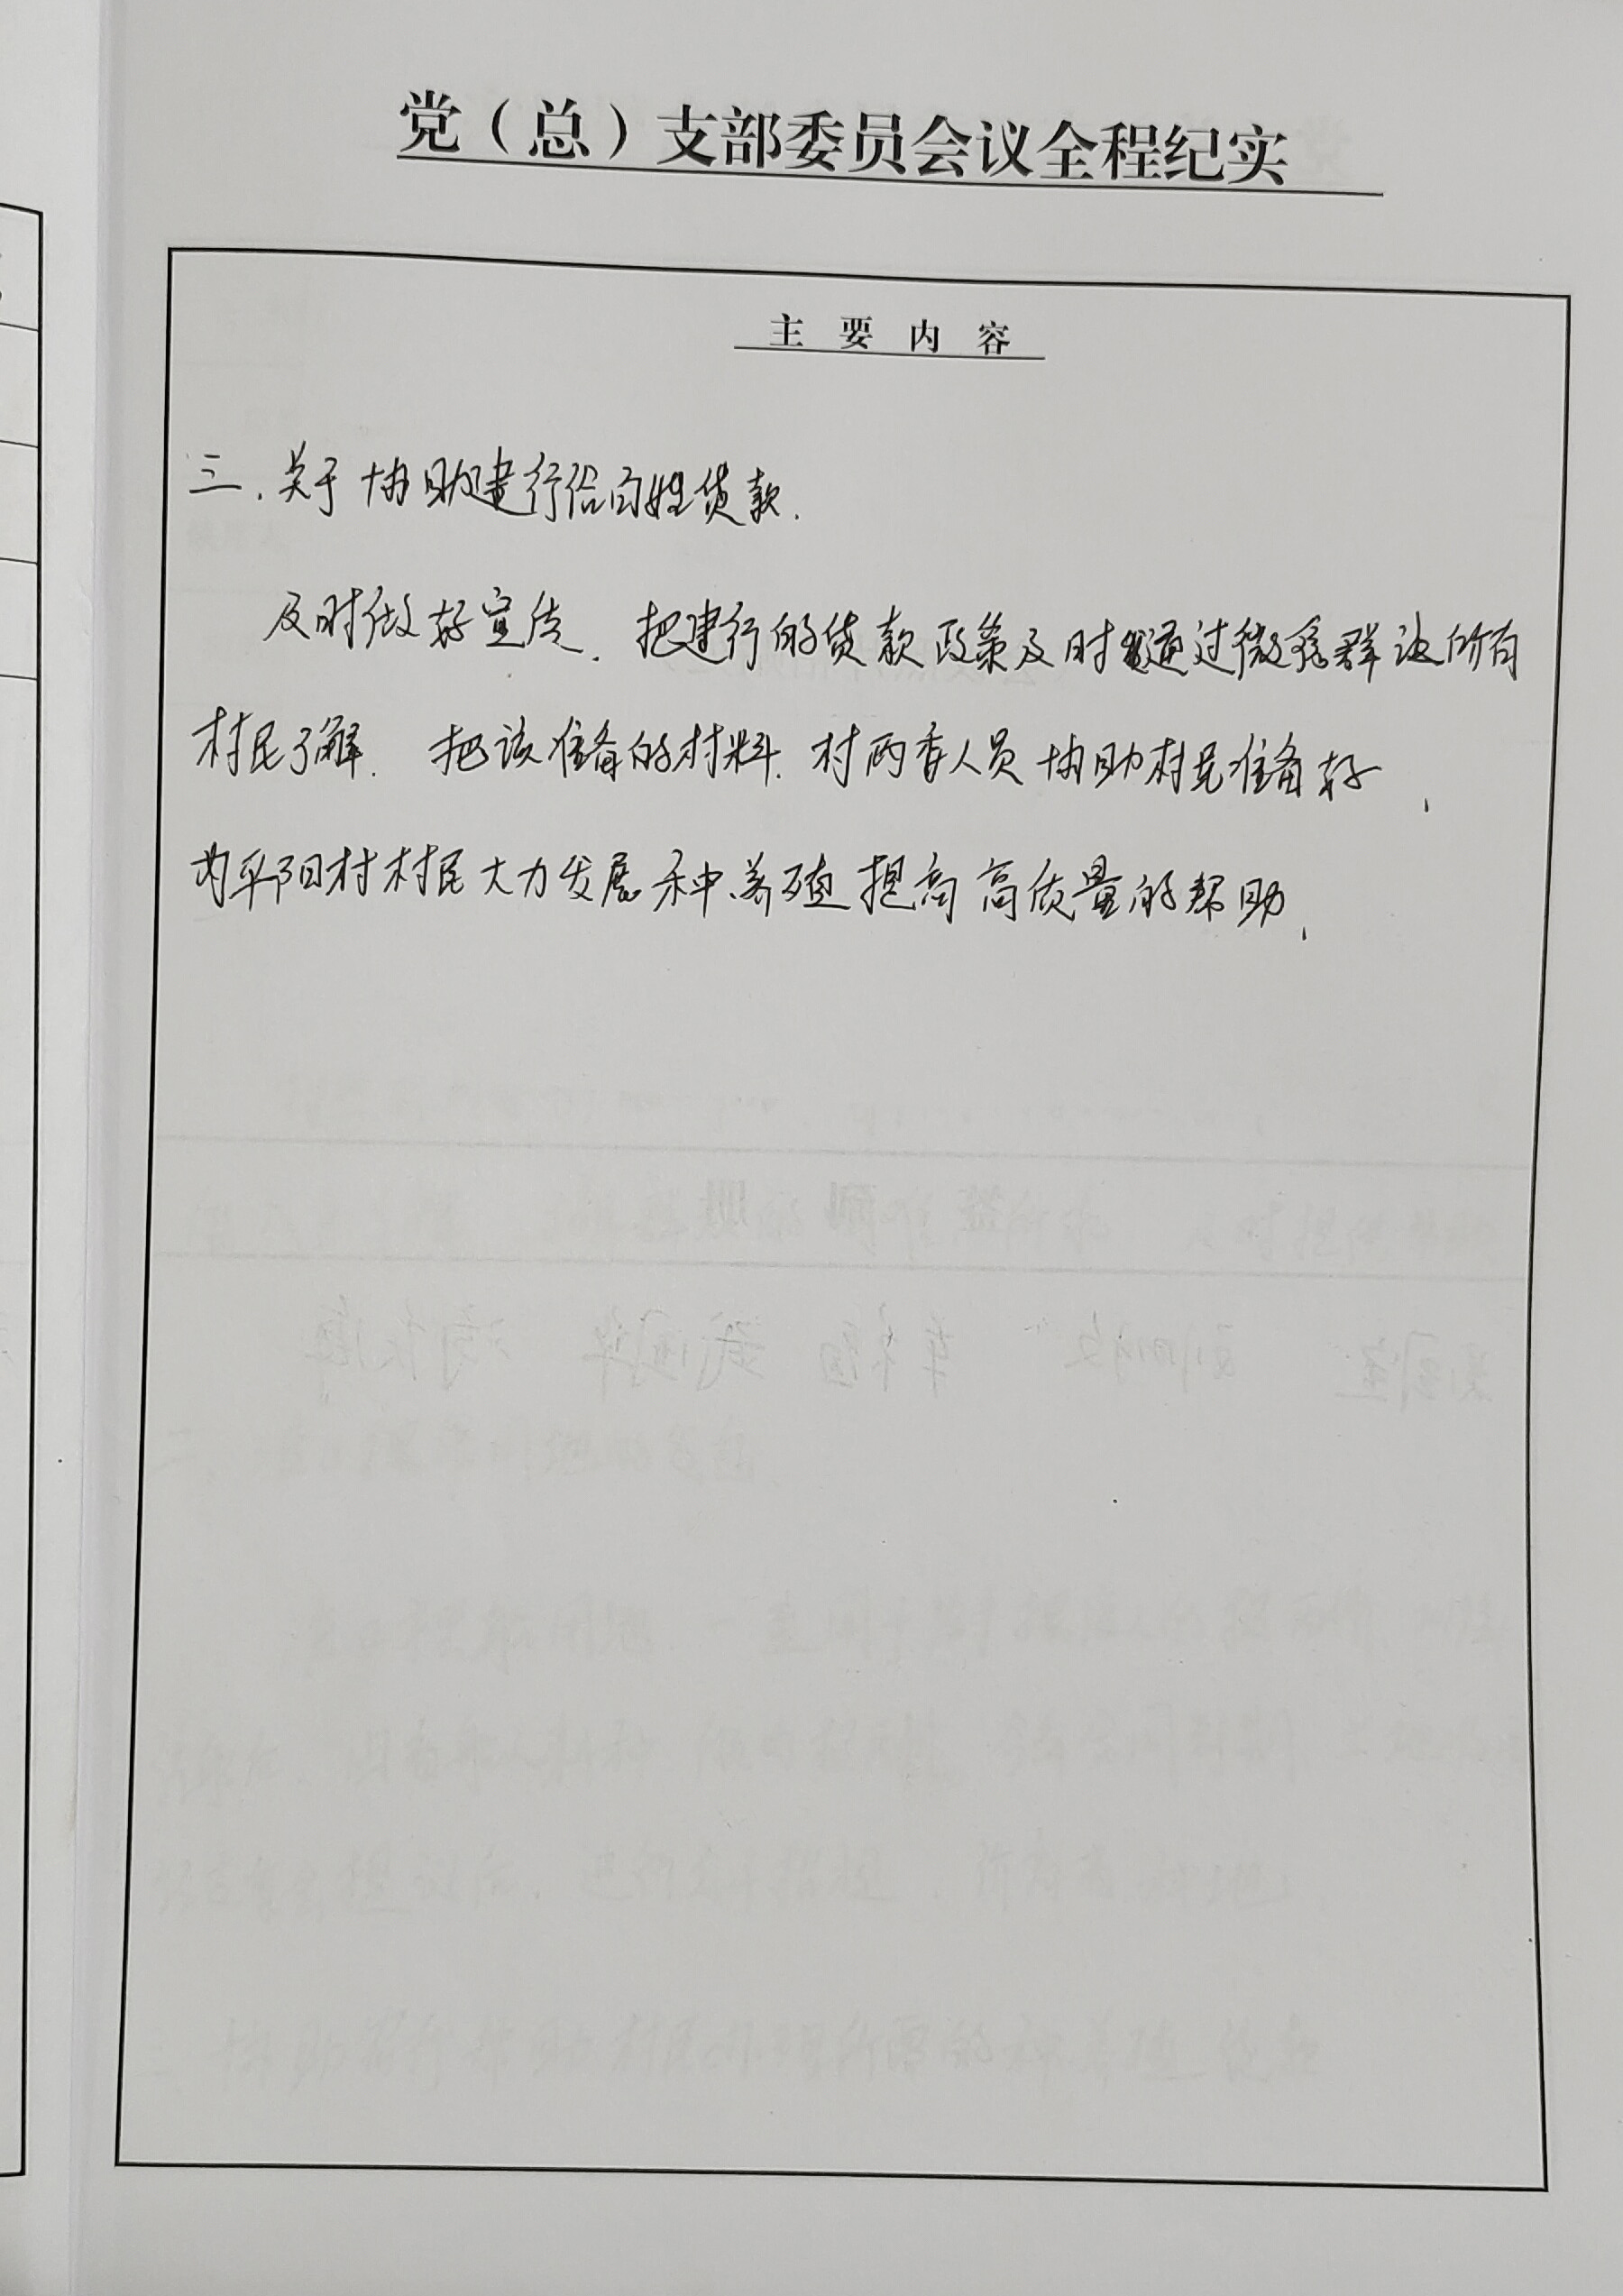 党（总）支部委员会议全程纪实
主要内容
三.关于协助建行给百姓贷款.
及时做好宣传.把建行的贷款政策及时通过微信群让所有
村民了解.把该准备的材料.村两委人员协助村民准备好、
为平阳村村民大力发展种养殖提高高质量的帮助、